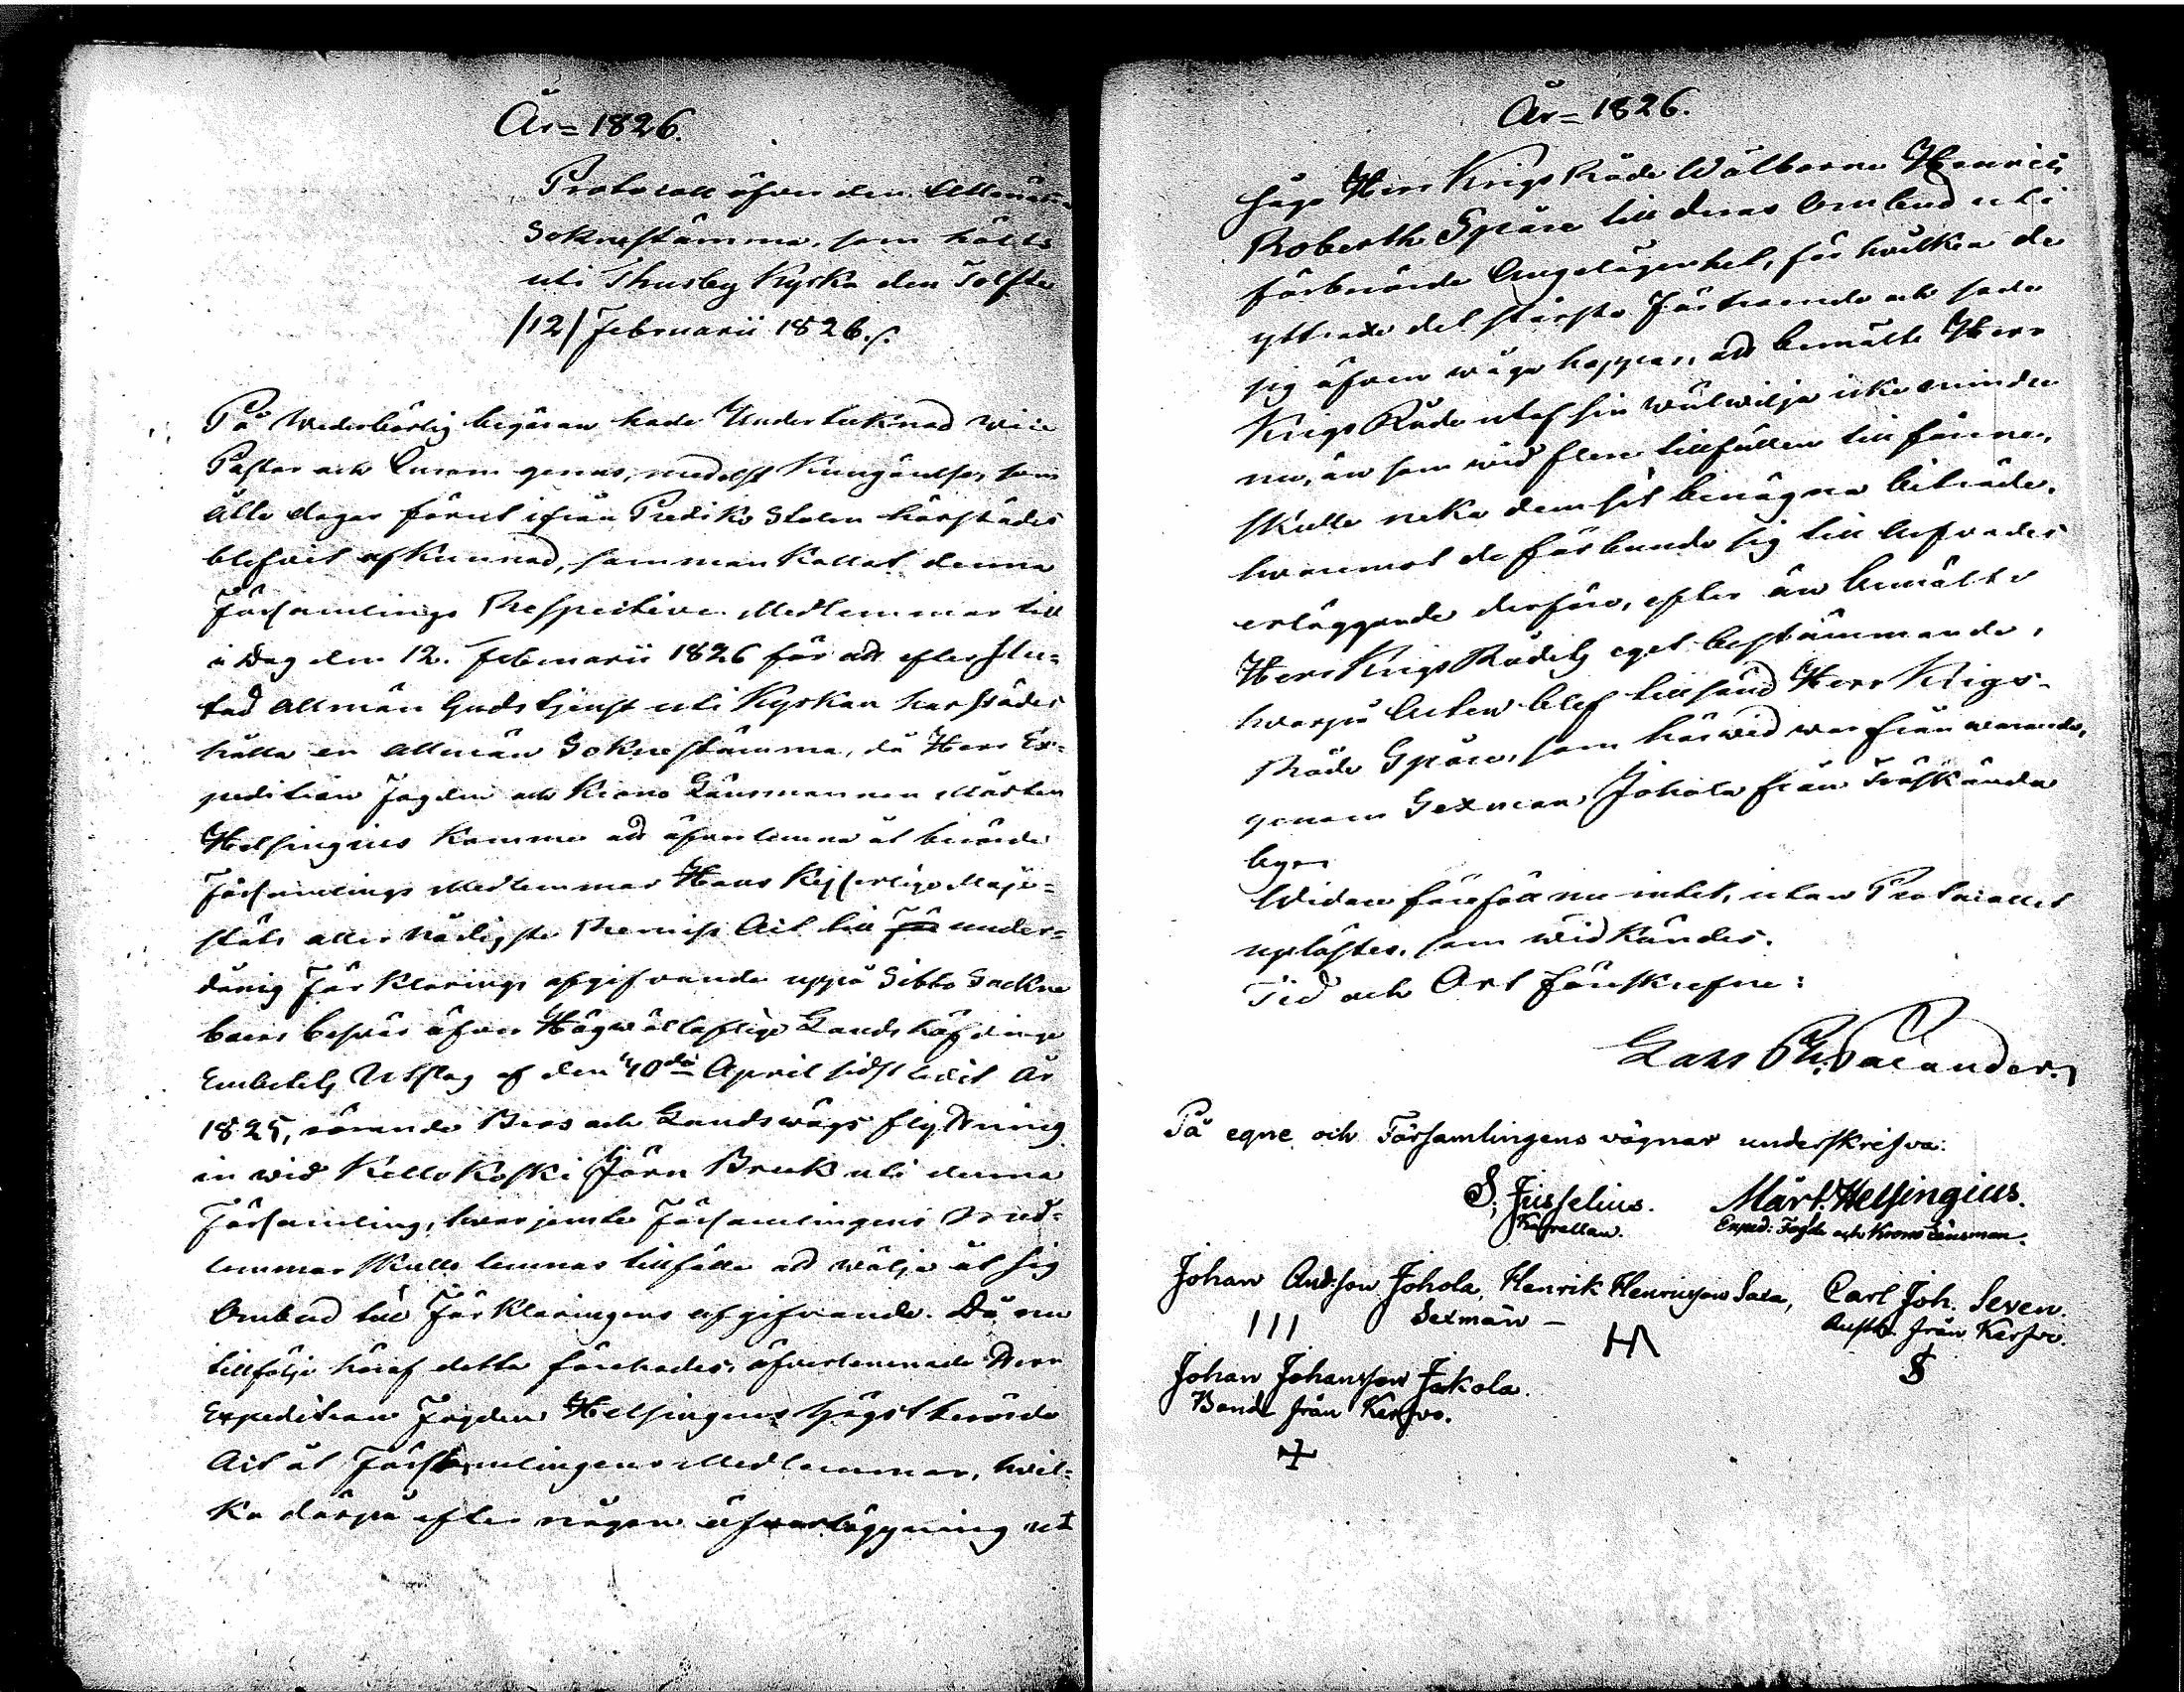 År = 1826.
Protocoll öfver den Allmänna
Soknestämma, som hölts
uti Thusby Kyrka den Tolfte
/12/ Februarii 1826.
På Wederbörlig begäran hade Undertecknad Vice
Pastor och Curam gerens, medelst Kungörelse, som
Åtta dagar förut ifrån Prediko Stolen härstädes
blefvit afkunnad, sammankallat denna
Församlings Respective Medlemmar till
i Dag den 12. Februarii 1826 för att efter slu=
tad Allmän Gudstjenst uti Kyrkan härstädes
hålla en Allmän Soknestämma, då Herr Ex=
pedition Fogden och Krono Länsmannen Mårten
Helsingius komme att öfverlemna åt berörde
Församlings Medlemmar Hans Kejserliga Maje=
stäts aller Nådigste Remiss Act till under=
dånig Förklarings afgifvande uppå Sibbo Sockne
boers besvär öfver Högvällofliga Landshöfdinge
Embetets Utslag af den 10de April sidstledit År
1825, rörande Bros och Landsvägs flyttning
in vid Kellokoski Jern Bruk uti denna
Församling, hvarjemte Församlingens Med=
lemmar skulle lemnas tillfälle att välja åt sig
Ombud till Förklaringens afgifvande. Då nu
tillfölje häraf detta förehades, öfverlemnade Herr
Expedition Fogden Helsingius högstberörde
Act åt Församlingens Medlemmar, hvil=
ka därpå efter någon öfverläggning ut
År = 1826.
sågo Herr Krigs Rådet Wälborne Henric
Roberth Spåre till deras Ombud uti
förberörde Angelägenhet, för hvilken de
yttrade det största Förtroende och sade
sig äfven våga hoppas, att bemälte Herr
Krigs Råde utaf sin välvilja icke mindre
nu, än som vid flere tillfällen till förene,
skulle neka dem sit benägna biträde,
hvaremot de förbundo sig till Arfvodes
erläggande derföre, efter än bemälte
Herr Krigs Rådets eget bestämmande,
hvarpå Acten blef tillsänd Herr Krigs-
Råde Spåre, som härvid var frånvarande,
genom Sexman Johola från Träskända
by.
Widare föreföll nu intet, utan Protocollet
uplästes, som vidkändes.
Tid och Ort föreskrefne:
Lars Ph. Palander.
På egne och Församlingens vägnar underskrifva:
S. Jusselius. Mårt. Helsingius.
Kapellan. Exped: Fogde och Krono Länsman.
Johan Andsson Johola, Henrik Henricsson Saxa, Carl Joh. Seven.
Sexmän – från Kerfvo.
Johan Johansson Jokola.
Bonde från Kerfvo.